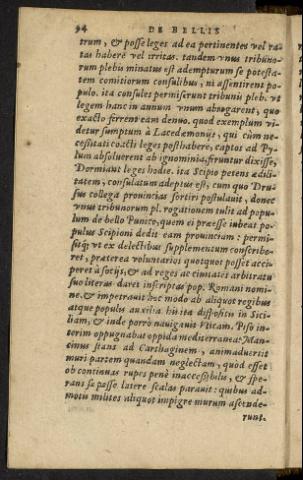 94 DE BELLIS
trum, & posse leges ad ea pertinentes vel ra-
tas habere vel irritas. tandem vnus tribuno-
rum plebis minatus est adempturum se potesta-
tem comitiorum consulibus, ni assentirent po-
pulo. ita consules permiserunt tribunis pleb. vt
legem hanc in annum vnum abrogarent, quo
exacto ferrent eam denuo. quod exemplum vi-
detur sumptum à Lacedemonijs, qui cùm ne-
cessitati coacti leges posthabere, captos ad Py-
lum absoluerent ab ignominia, fruntur dixisse,
Dormiant leges hodie. ita Scipio petens ædili-
tatem, consulatum adeptus est, cum quo Dru-
sus collega prouincias sortiri postulauit, donec
vnus tribunorum pl. rogationem tulit ad popu-
lum de bello Punico, quem ei præesse iubeat po-
pulus Scipioni dedit eam prouinciam: permi-
sitq; vt ex delectibus supplementum conscribe-
ret, præterea voluntarios quotquot posset acci-
peret à socijs, & ad reges ac ciuitates arbitratu
suo literas daret inscriptas pop. Romani nomi-
ne. & impetrauit hoc modo ab aliquot regibus
atque populis auxilia. his ita dispositis in Sici-
liam, & inde porrò nauigauit Vticam. Piso in-
terim oppugnabat oppida mediterranea: Man-
cinus stans ad Carthaginem, animaduertit
muri partem quandam neglectam, quòd esset
ob continuas rupes penè inaccessibilis, & spe-
rans se posse latere scalas parauit: quibus ad-
motis milites aliquot impigre murum ascende-
runt.